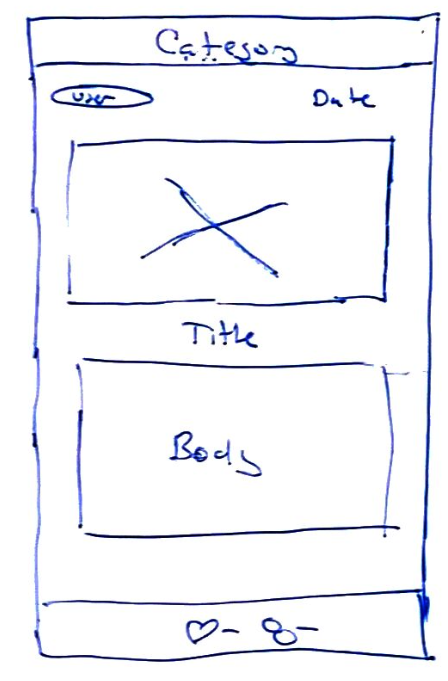 Category
User
Date
Title
Body